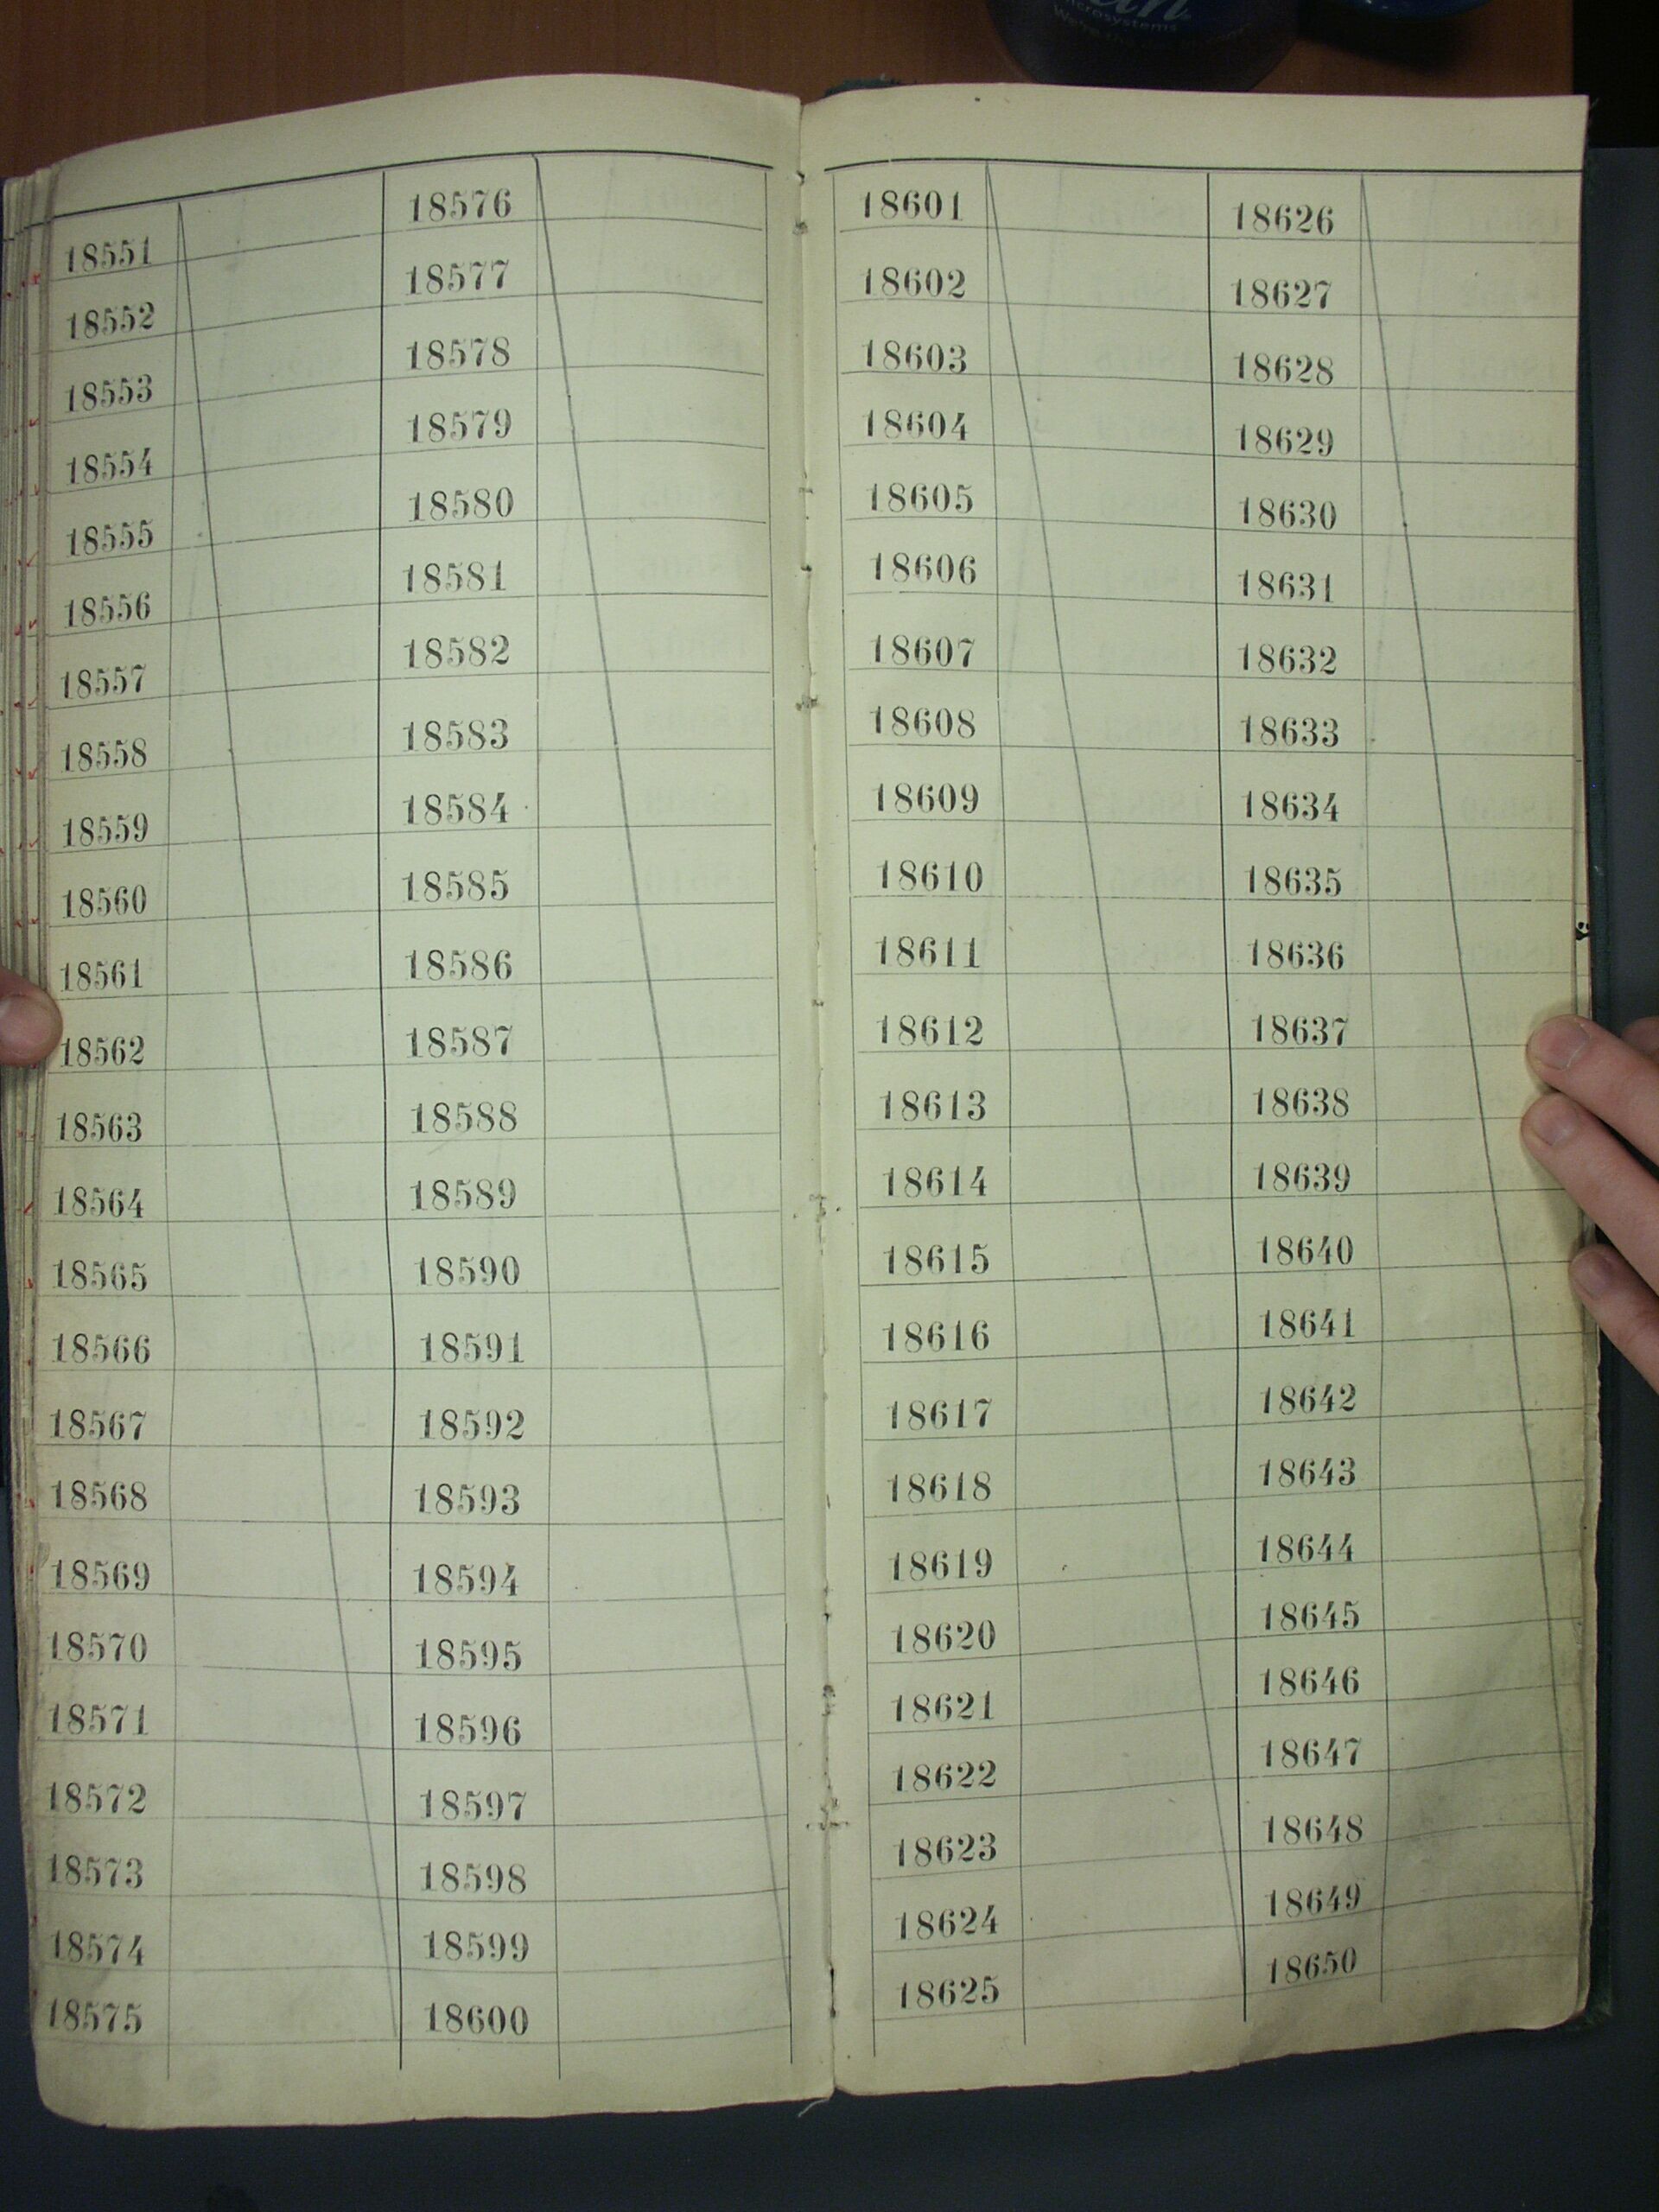 Microsystems
18551
18552
18553
18554
18555
18556
18557
18558
18559
18560
18561
18562
18563
18564
18565
18566
18567
18568
18569
18570
18571
18572
18573
18574
18575
18576
18577
18578
18579
18580
18581
18582
18583
18584
18585
18586
18587
18588
18589
18590
18591
18592
18593
18594
18595
18596
18597
18598
18599
18600
18601
18602
18603
18604
18605
18606
18607
18608
18609
18610
18611
18612
18613
18614
18615
18616
18617
18618
18619
18620
18621
18622
18623
18624
18625
18626
18627
18628
18629
18630
18631
18632
18633
18634
18635
18636
18637
18638
18639
18640
18641
18642
18643
18644
18645
18646
18647
18648
18649
18650